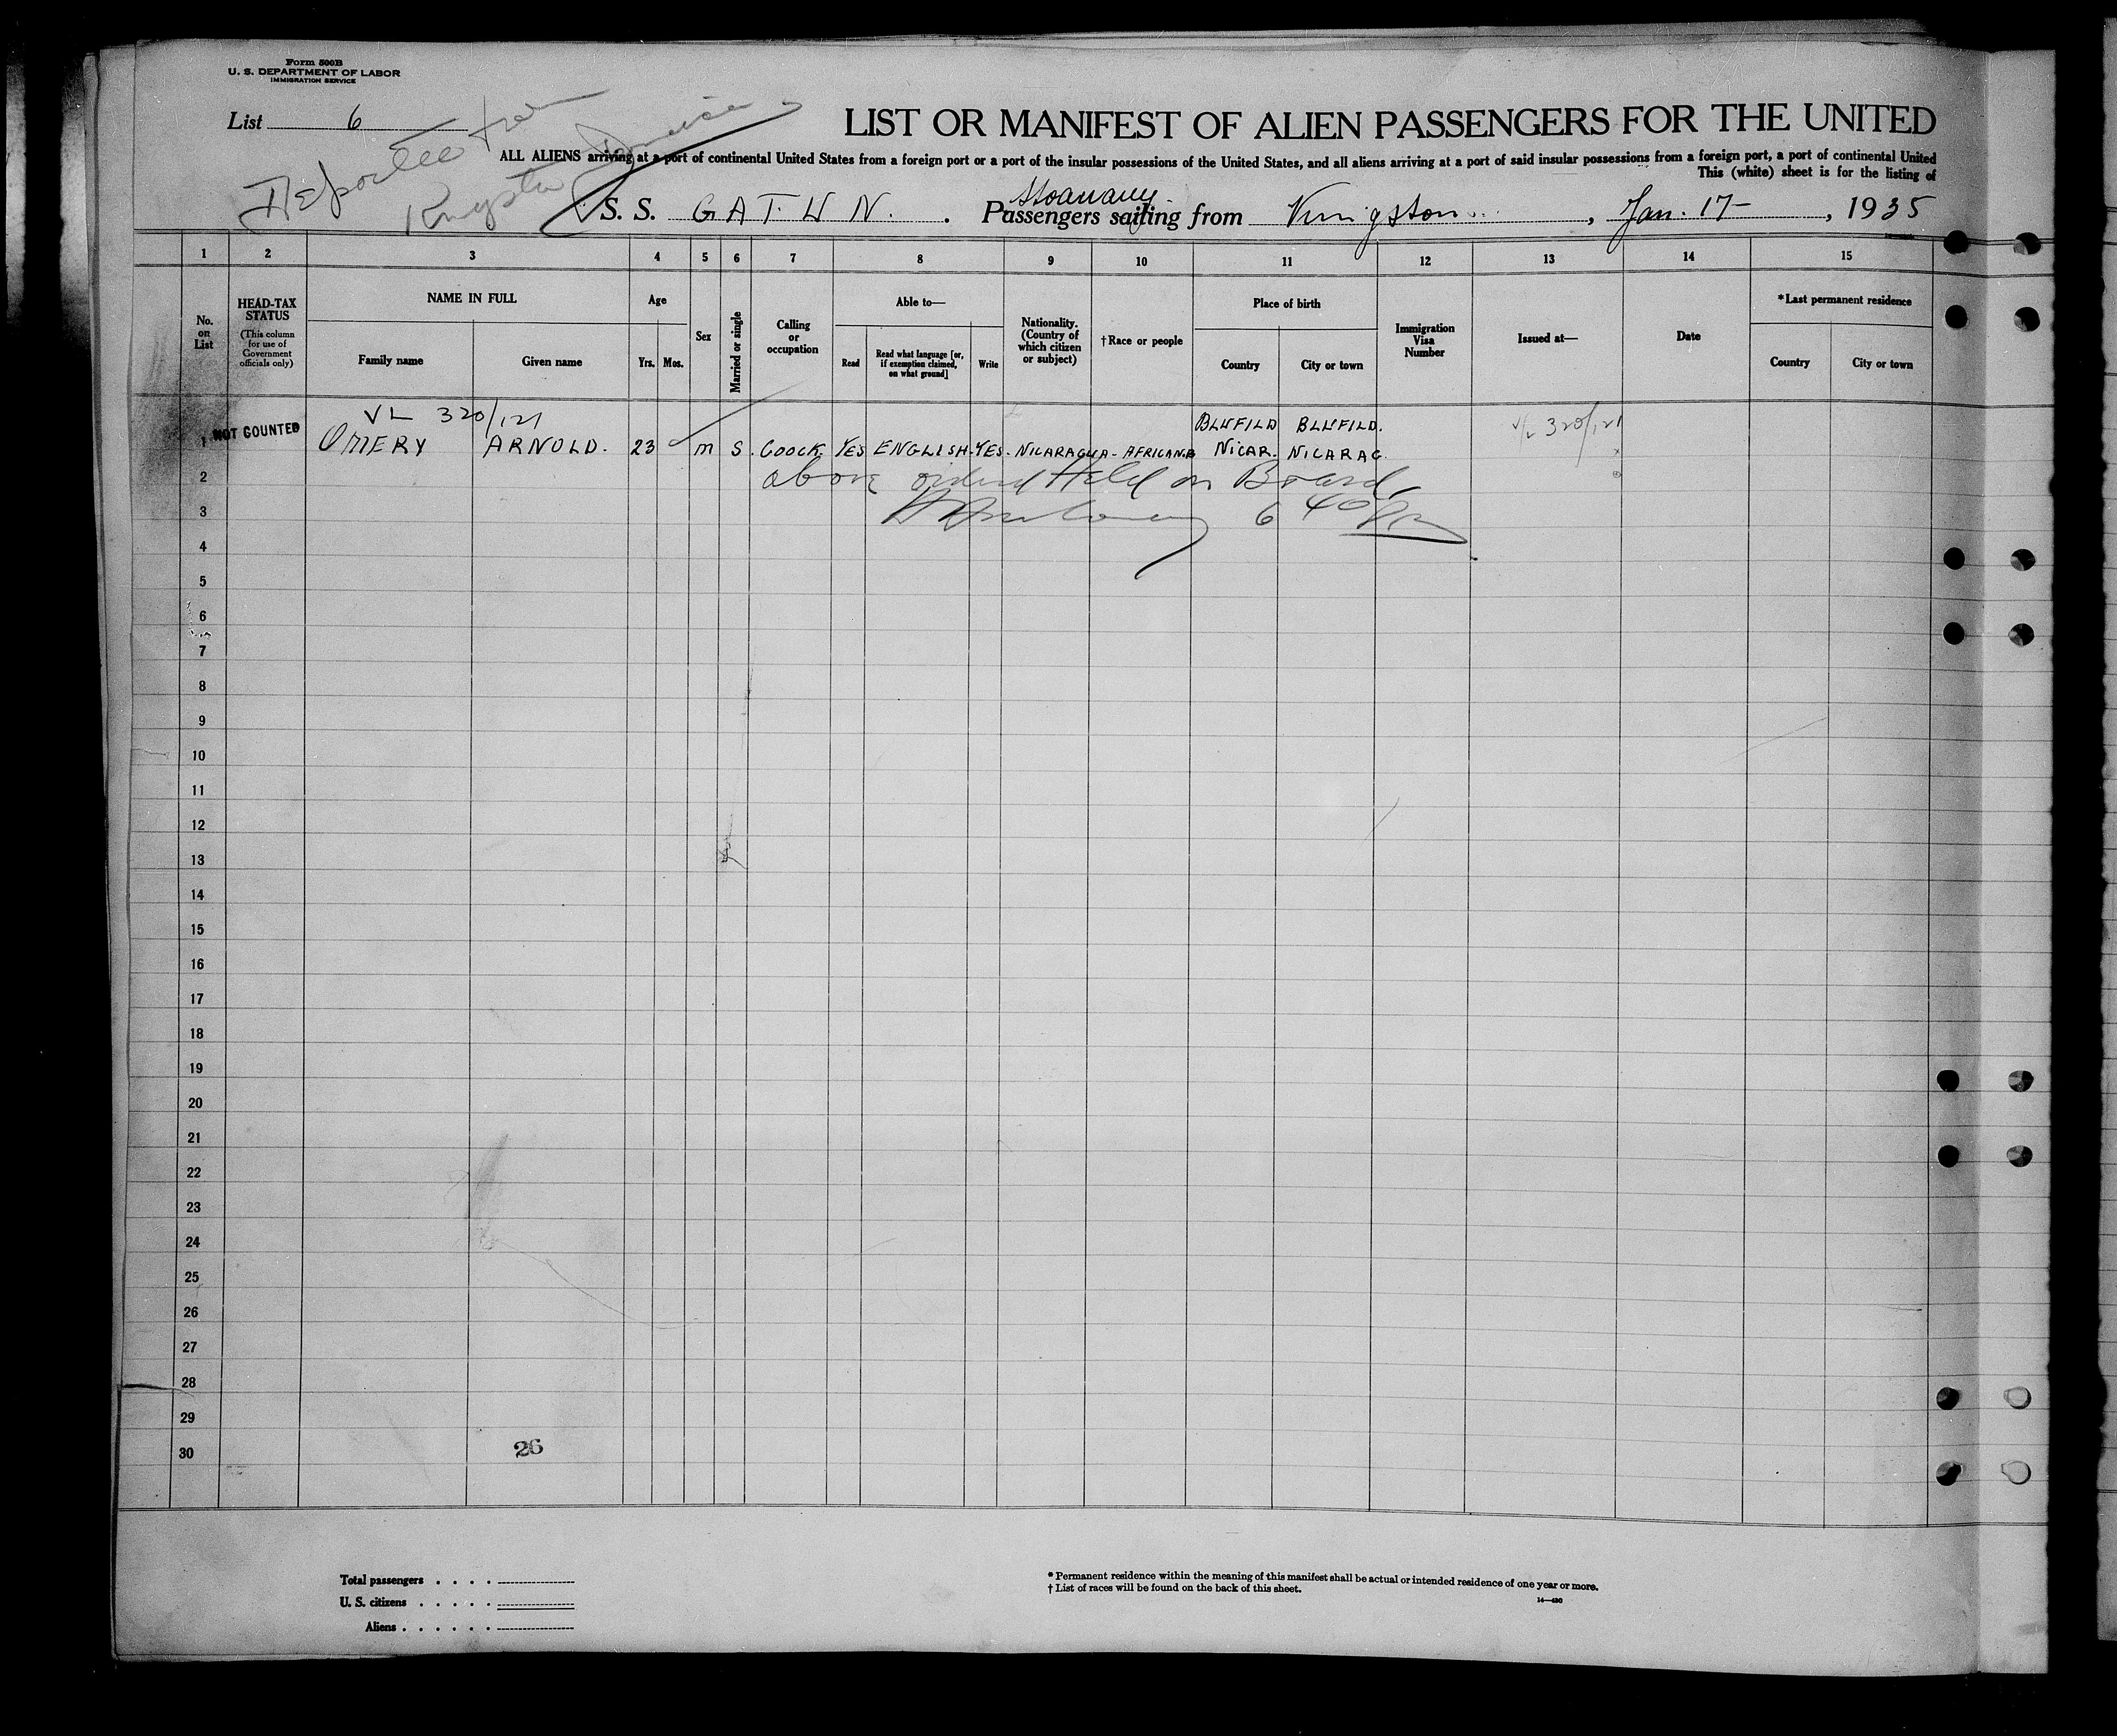 Form 500B
U. S. DEPARTMENT OF LABOR
IMMIGRATION SERVICE
List 6
Deportee from
Kingston Jamaica
LIST OR MANIFEST OF ALIEN PASSENGERS FOR THE UNITED
ALL ALIENS arriving at a port of continental United States from a foreign port or a port of the insular possessions of the United States, and all aliens arriving at a port of said insular possessions from a foreign port, a port of continental United
This (white) sheet is for the listing of
Stoaway
S. S. GATUN. Passengers sailing from Kingston, Jan. 17-, 1935
1 2 3 4 5 6 7 8 9 10 11 12 13 14 15
No. on List
HEAD-TAX STATUS
(This column for use of Government officials only)
NAME IN FULL
Family name
Given name
Age
Yrs.
Mos.
Sex
Married or single
Calling or occupation
Able to—
Read
Read what language [or, if exemption claimed, on what ground]
Write
Nationality. (Country of which citizen or subject)
†Race or people
Place of birth
Country
City or town
Immigration Visa Number
Issued at—
Date
*Last permanent residence
Country
City or town
VL 320/121
BLUFILD BLUFILD.
V/L 320/121
1 NOT COUNTED OMERY ARNOLD. 23 m S. COOCK. YES ENGLISH. YES. NICARAGUA- AFRICAN. NICAR. NICARAG
2 above ordered Held on Board
3 6 40 Pm
4
5
6
7
8
9
10
11
12
13
14
15
16
17
18
19
20
21
22
23
24
25
26
27
28
29
30
26
Total passengers
U. S. citizens
Aliens
* Permanent residence within the meaning of this manifest shall be actual or intended residence of one year or more.
† List of races will be found on the back of this sheet.
14—430